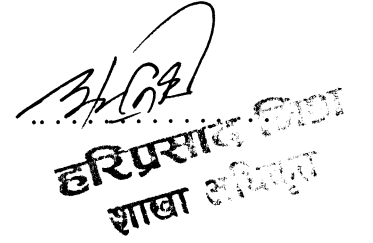 हरिप्रसाद मिश्र
शाखा अधिकृत